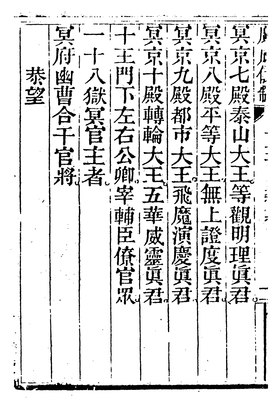 冥京七殿泰山大王等觀明理眞君
冥京八殿平等大王無上證度眞君
冥京九殿都市大王飛魔演慶眞君
冥京十殿轉輪大王五華威靈眞君
十王門下左右公卿宰輔臣僚官眾
一十八獄冥官主者
冥府幽曹合干官將
恭望